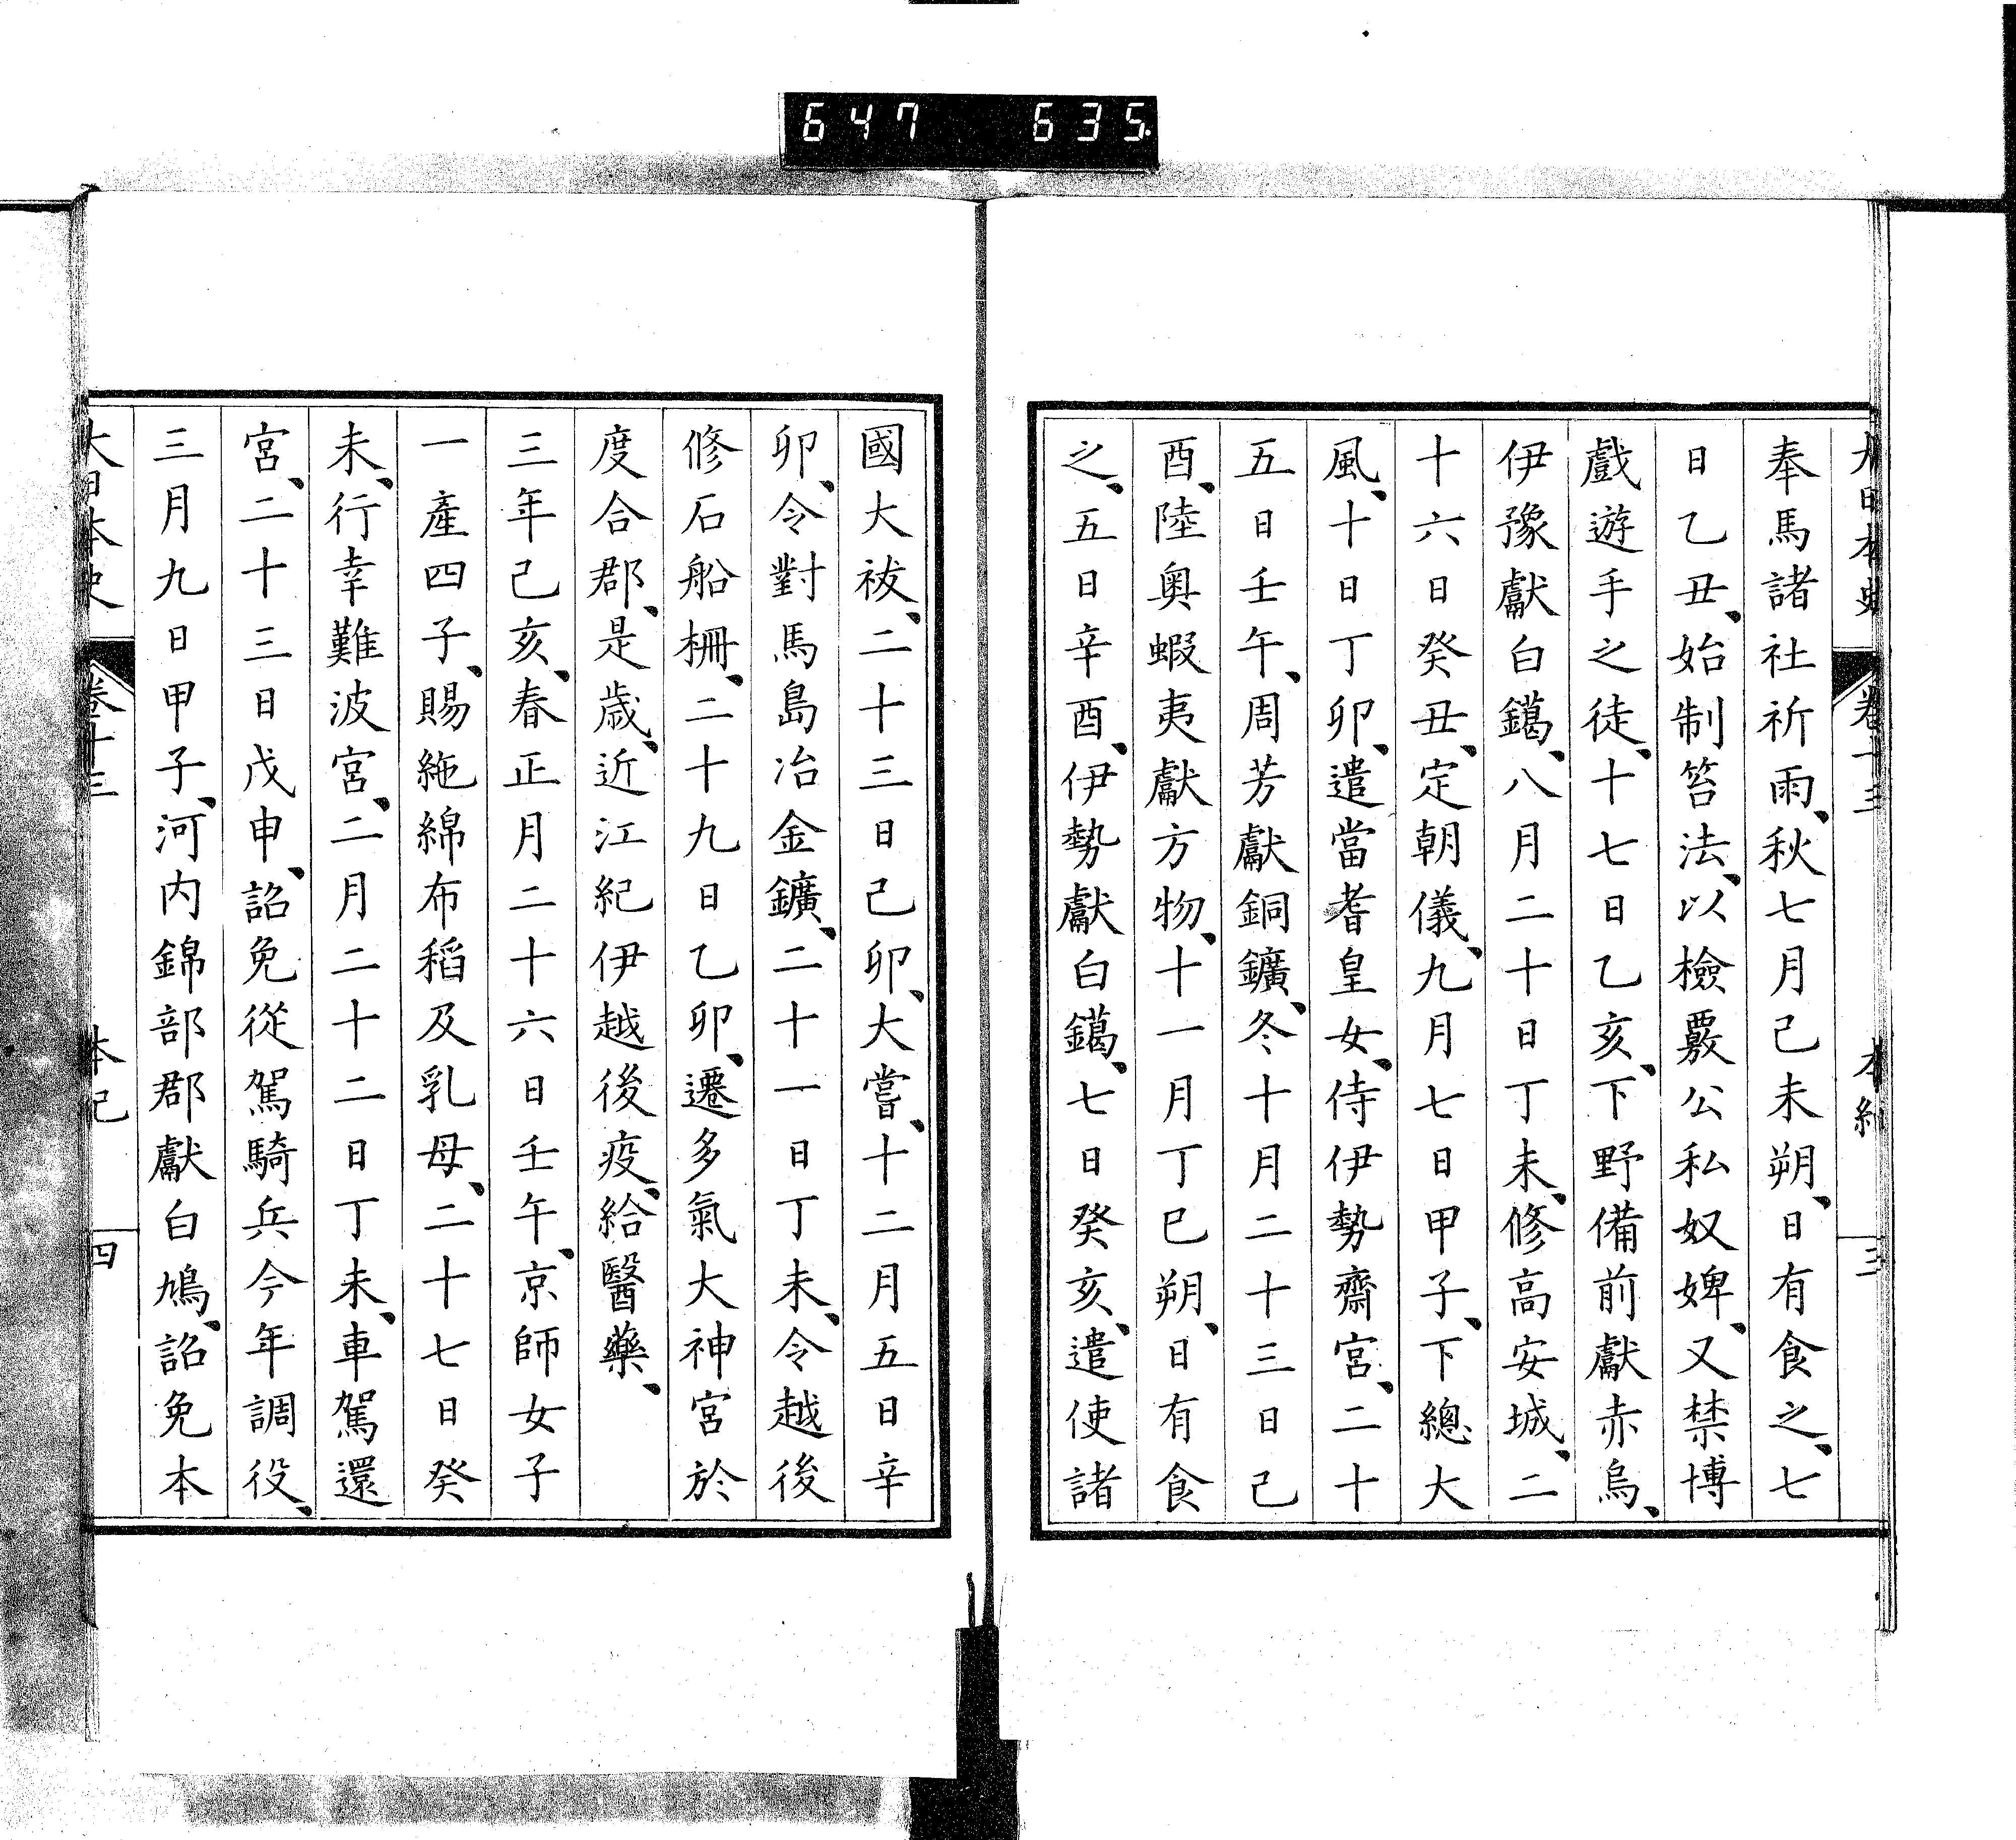 647 635
大日本史 卷十三 本紀 三
奉馬諸社祈雨、秋七月己未朔、日有食之、七
日乙丑、始制笞法、以檢覈公私奴婢、又禁博
戲遊手之徒、十七日乙亥、下野備前獻赤烏、
伊豫獻白鑞、八月二十日丁未、修高安城、二
十六日癸丑、定朝儀、九月七日甲子、下總大
風、十日丁卯、遣當耆皇女、侍伊勢齋宮、二十
五日壬午、周芳獻銅鑛、冬十月二十三日己
酉、陸奧蝦夷獻方物、十一月丁巳朔、日有食
之、五日辛酉、伊勢獻白鑞、七日癸亥、遣使諸
國大祓、二十三日己卯、大嘗、十二月五日辛
卯、令對馬島冶金鑛、二十一日丁未、令越後
修石船柵、二十九日乙卯、遷多氣大神宮於
度合郡、是歲、近江紀伊越後疫、給醫藥、
三年己亥、春正月二十六日壬午、京師女子
一產四子、賜絁綿布稻及乳母、二十七日癸
未、行幸難波宮、二月二十二日丁未、車駕還
宮、二十三日戊申、詔免從駕騎兵今年調役、
三月九日甲子、河内錦部郡獻白鳩、詔免本
大日本史 卷十三 本紀 四